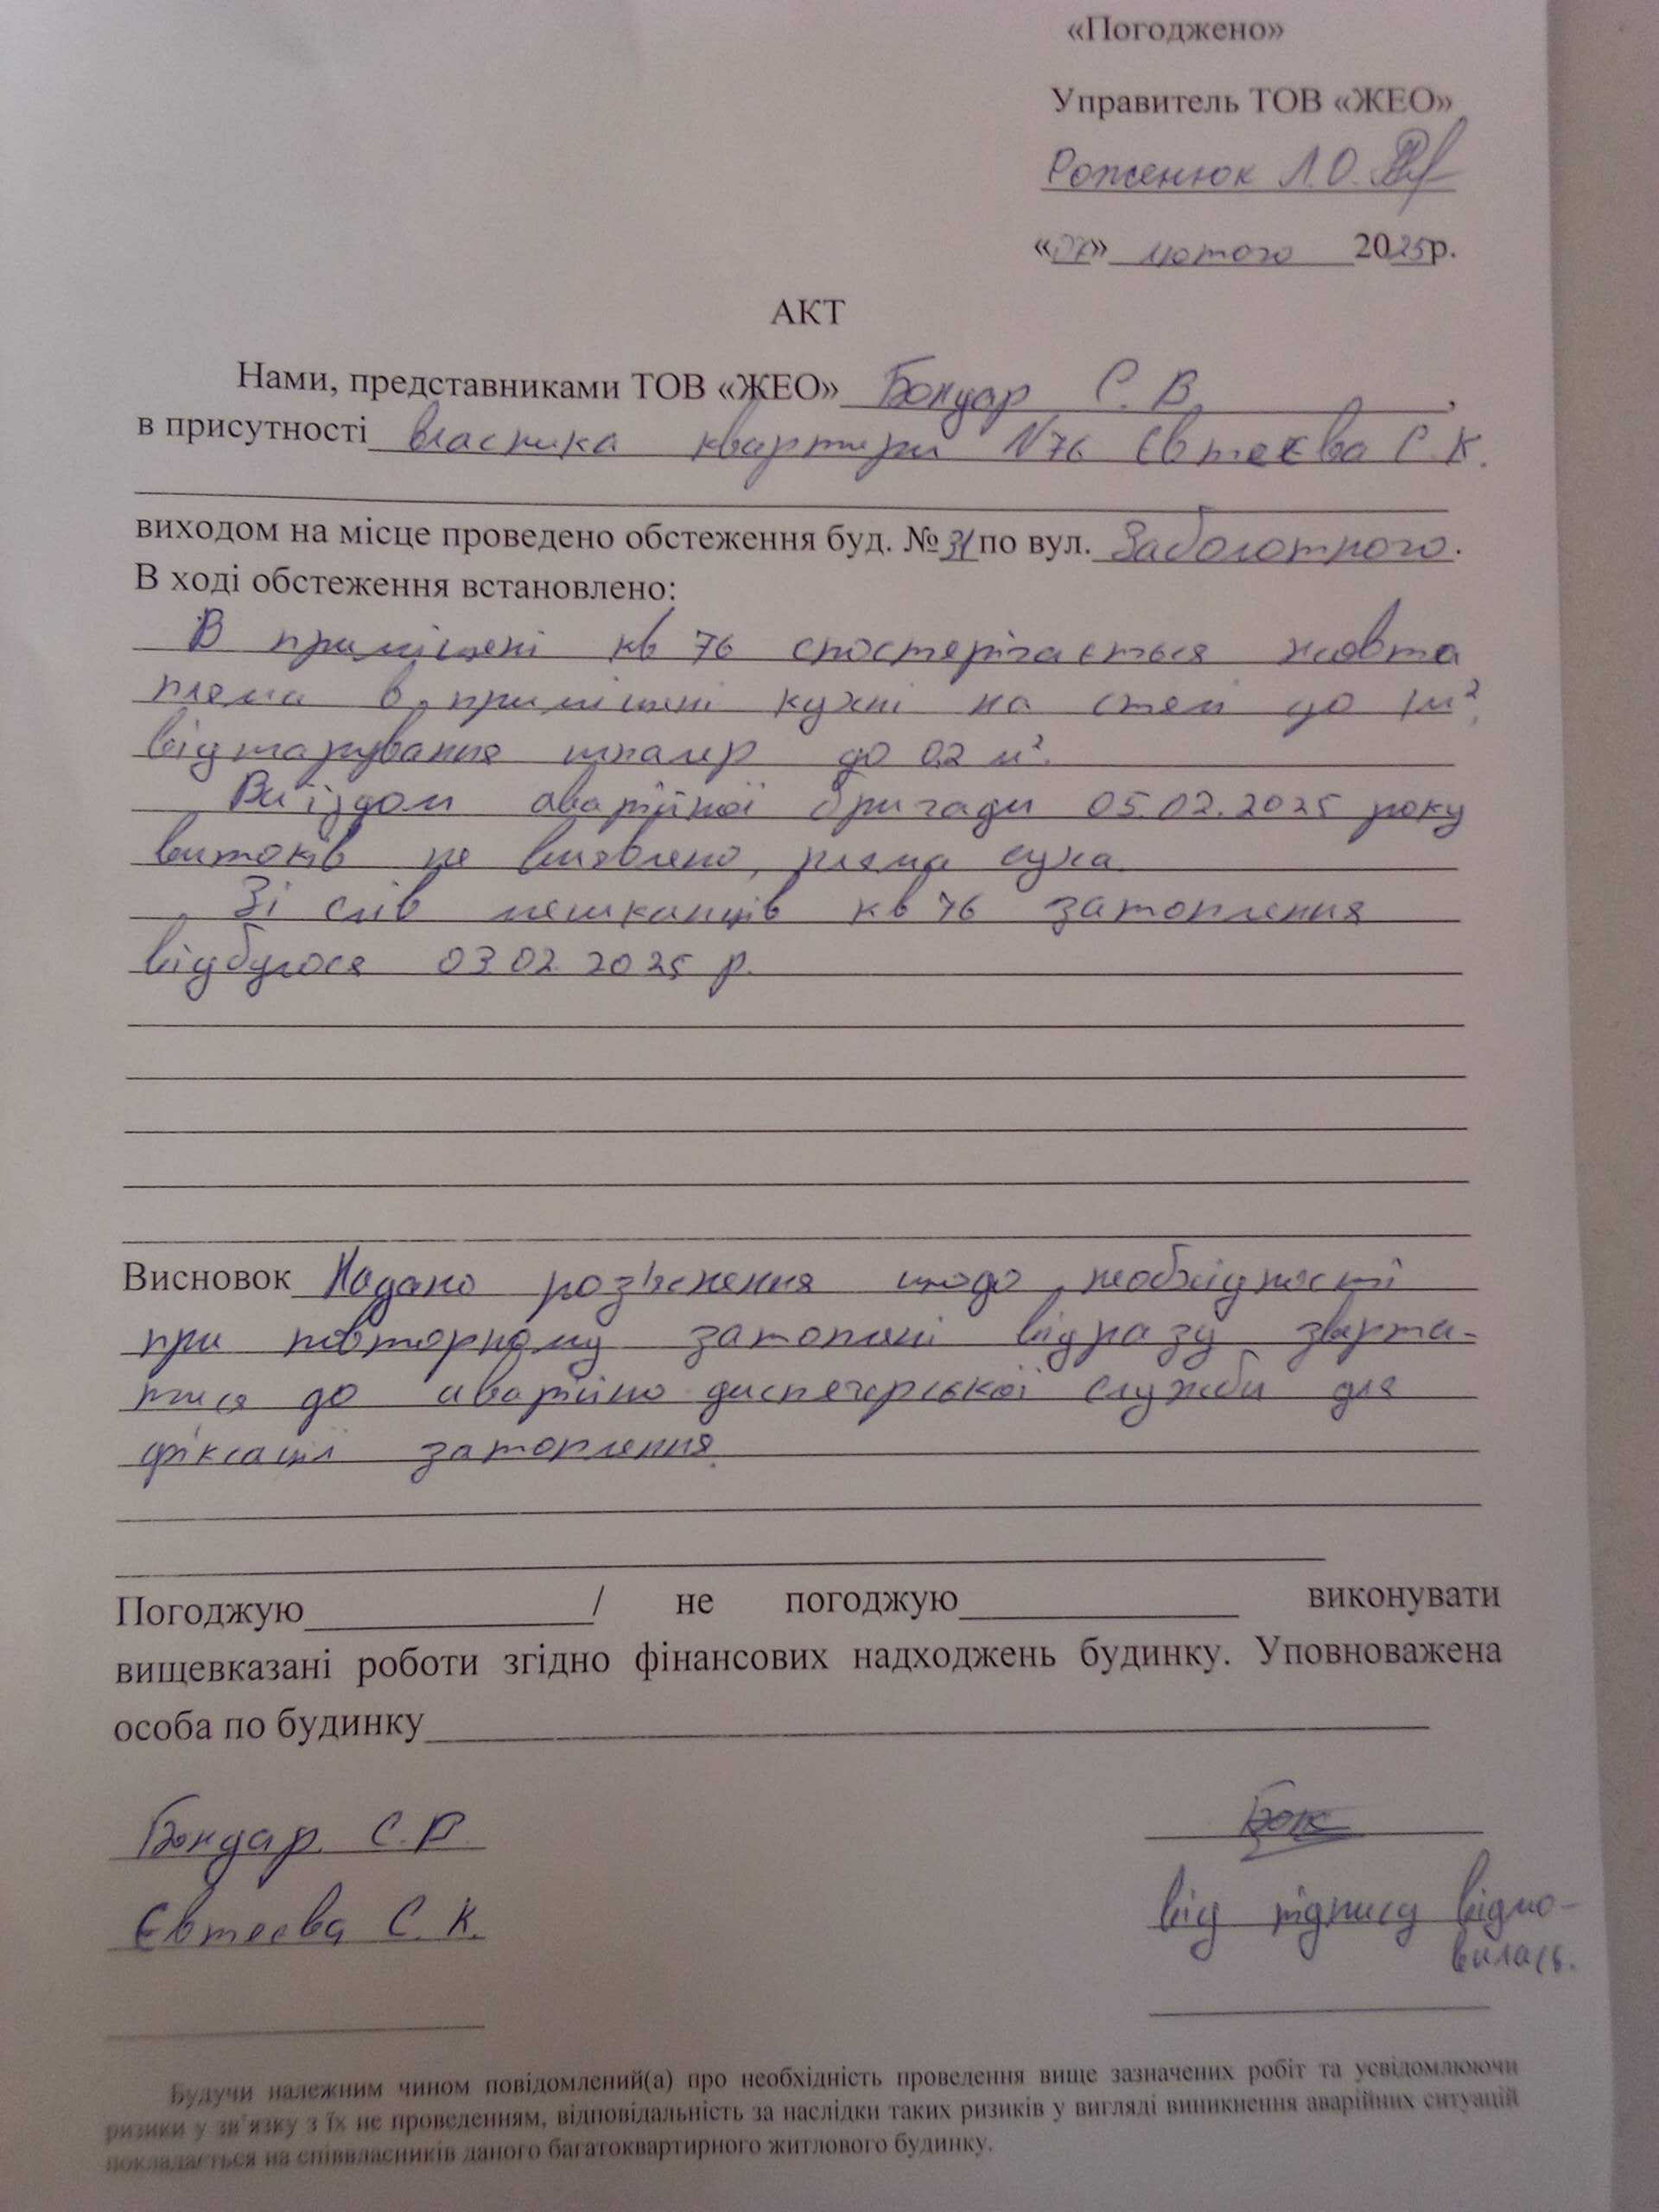 «Погоджено»
Управитель ТОВ «ЖЕО»
Роженюк Л.О.
«07» лютого 2025р.
АКТ
Нами, представниками ТОВ «ЖЕО» Бондар С. В.,
в присутності власника квартири №76 Євтеєва С.К.
виходом на місце проведено обстеження буд. №31 по вул. Заболотного.
В ході обстеження встановлено:
В приміщені кв 76 спостерігається жовта
пляма в приміщені кухні на стелі до 1м²,
відшарування шпалер до 0,2 м².
Виїздом аварійної бригади 05.02.2025 року
витоків не виявлено, пляма суха.
Зі слів мешканців кв 76 затоплення
відбулося 03.02.2025 р.
Висновок Надано роз'яснення щодо необхідності
при повторному затоплені відразу зверта-
тися до аварійно диспечерської служби для
фіксації затоплення.
Погоджую / не погоджую виконувати
вищевказані роботи згідно фінансових надходжень будинку. Уповноважена
особа по будинку
Бондар С.В.
Євтеєва С. К. від підпису відмо-
вилась.
Будучи належним чином повідомлений(а) про необхідність проведення вище зазначених робіт та усвідомлюючи
ризики у зв'язку з їх не проведенням, відповідальність за наслідки таких ризиків у вигляді виникнення аварійних ситуацій
покладається на співвласників даного багатоквартирного житлового будинку.